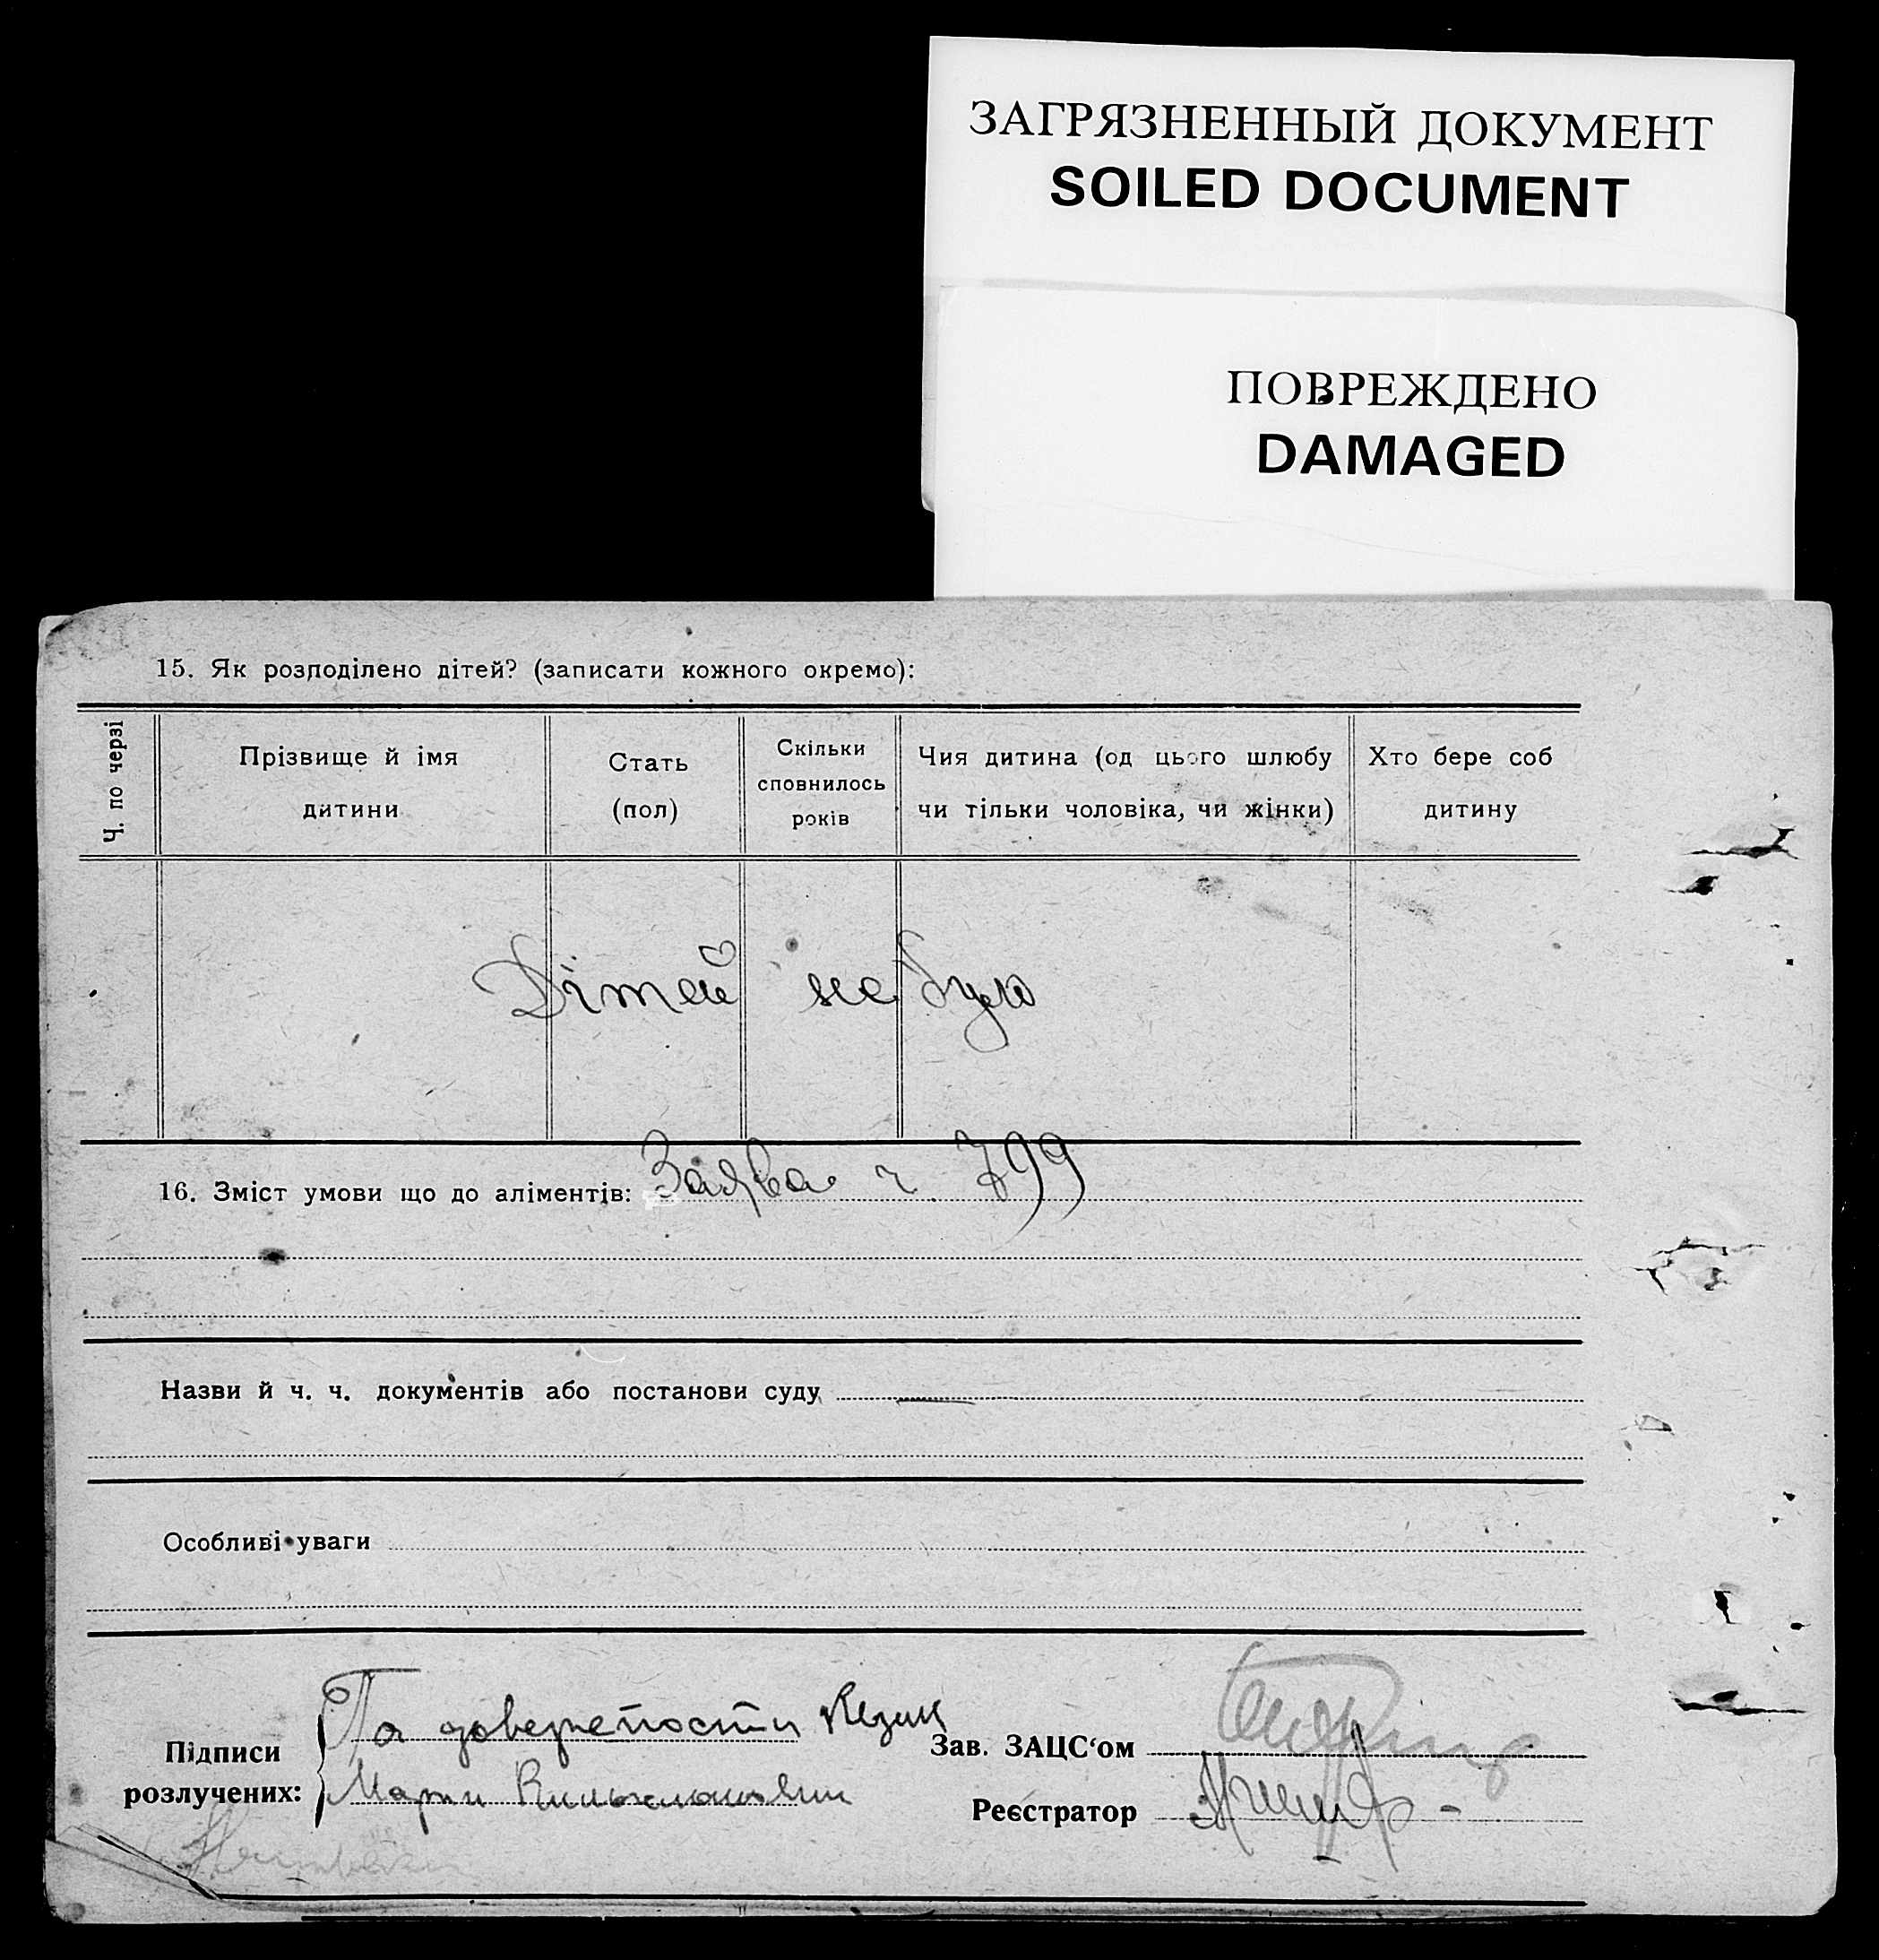 ЗАГРЯЗНЕННЫЙ ДОКУМЕНТ
SOILED DOCUMENT
ПОВРЕЖДЕНО
DAMAGED
15. Як розподілено дітей? (записати кожного окремо):
Ч. по черзі
Прізвище й імя
дитини
Стать
(пол)
Скільки
сповнилось
років
Чия дитина (од цього шлюбу
чи тільки чоловіка, чи жінки)
Хто бере соб
дитину
Дітей не було
16. Зміст умови що до аліментів: Заява ч. 799
Назви й ч. ч. документів або постанови суду
Особливі уваги
Підписи
розлучених:
По доверености
Марии
Зав. ЗАЦС‘ом
Реєстратор